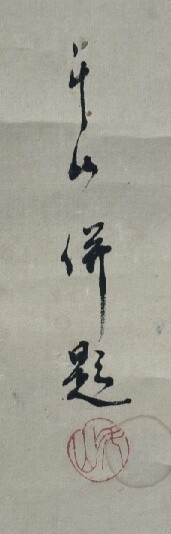 半山併題